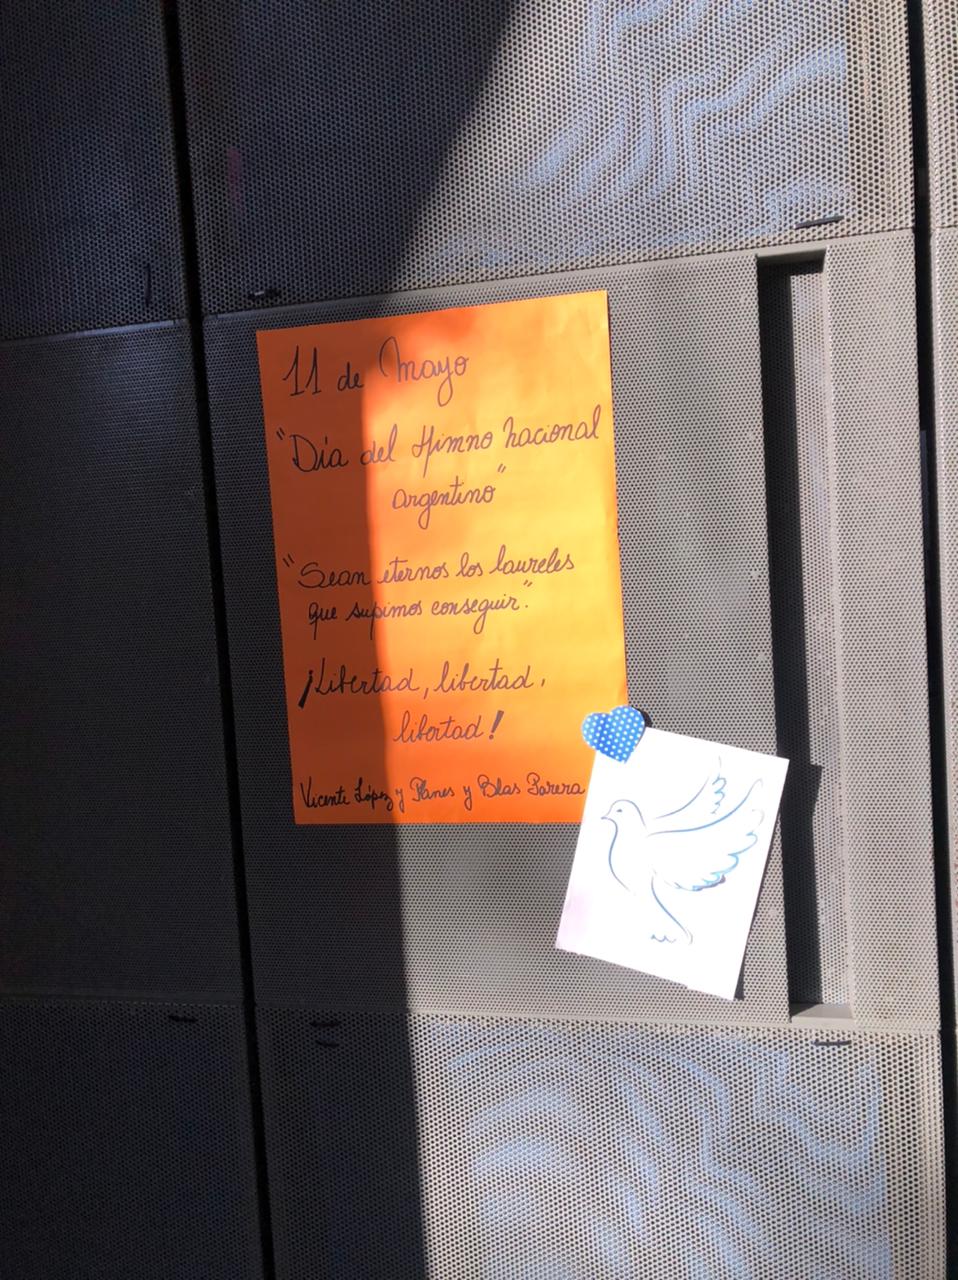 11 de Mayo
"Día del Himno nacional
argentino"
"Sean eternos los laureles
que supimos conseguir".
¡Libertad, libertad,
libertad!
Vicente López y Planes y Blas Parera